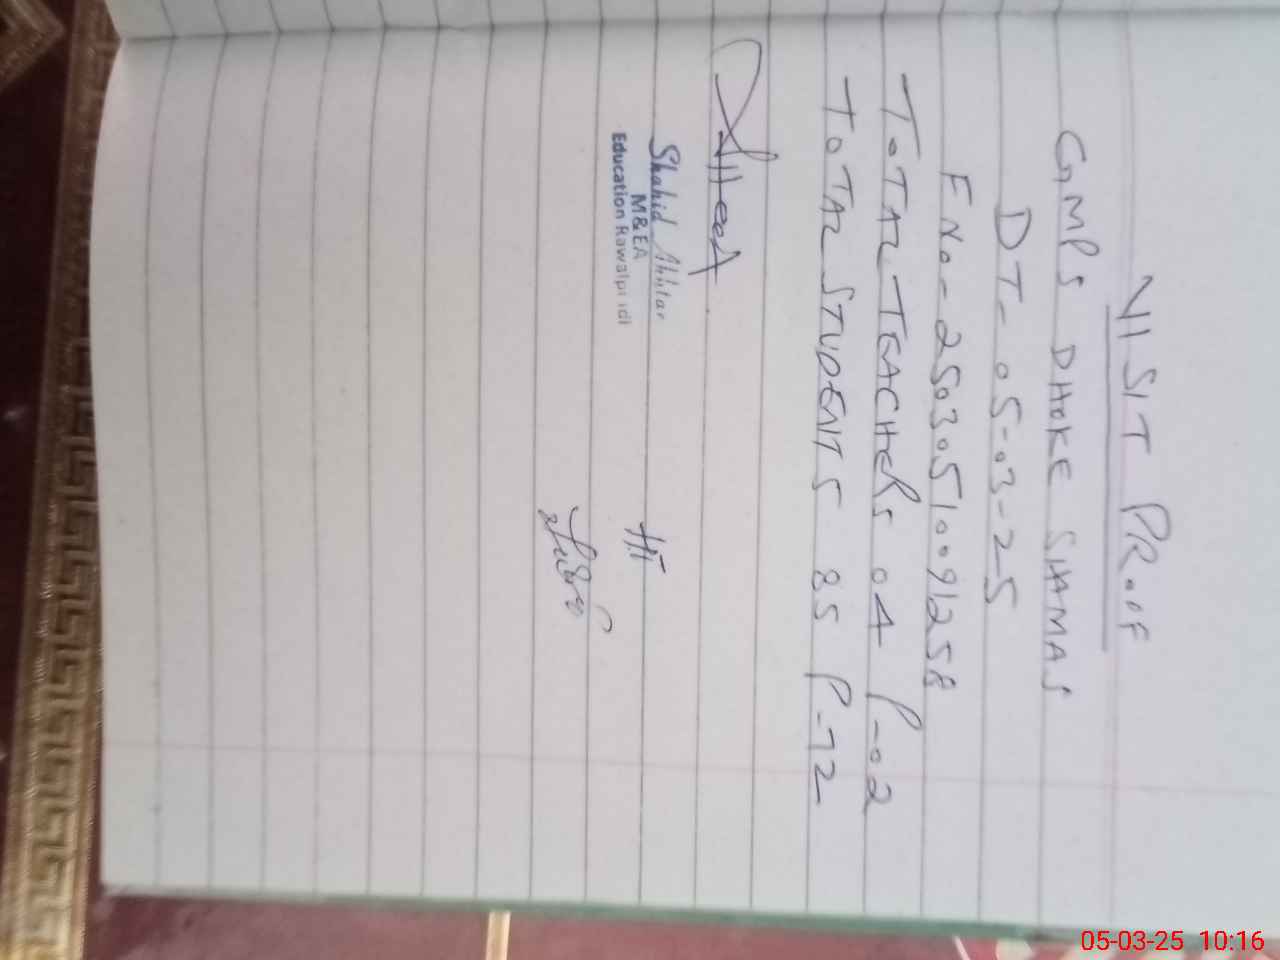 VISIT PROOF
GMPS DHOKE SHAMAS
DT- 05-03-25
F No- 25030510091258
TOTAL TEACHERS 04 P-02
TOTAL STUDENTS 85 P-72
Shahid Akhtar
M&EA
Education Rawalpindi
HT
05-03-25 10:16